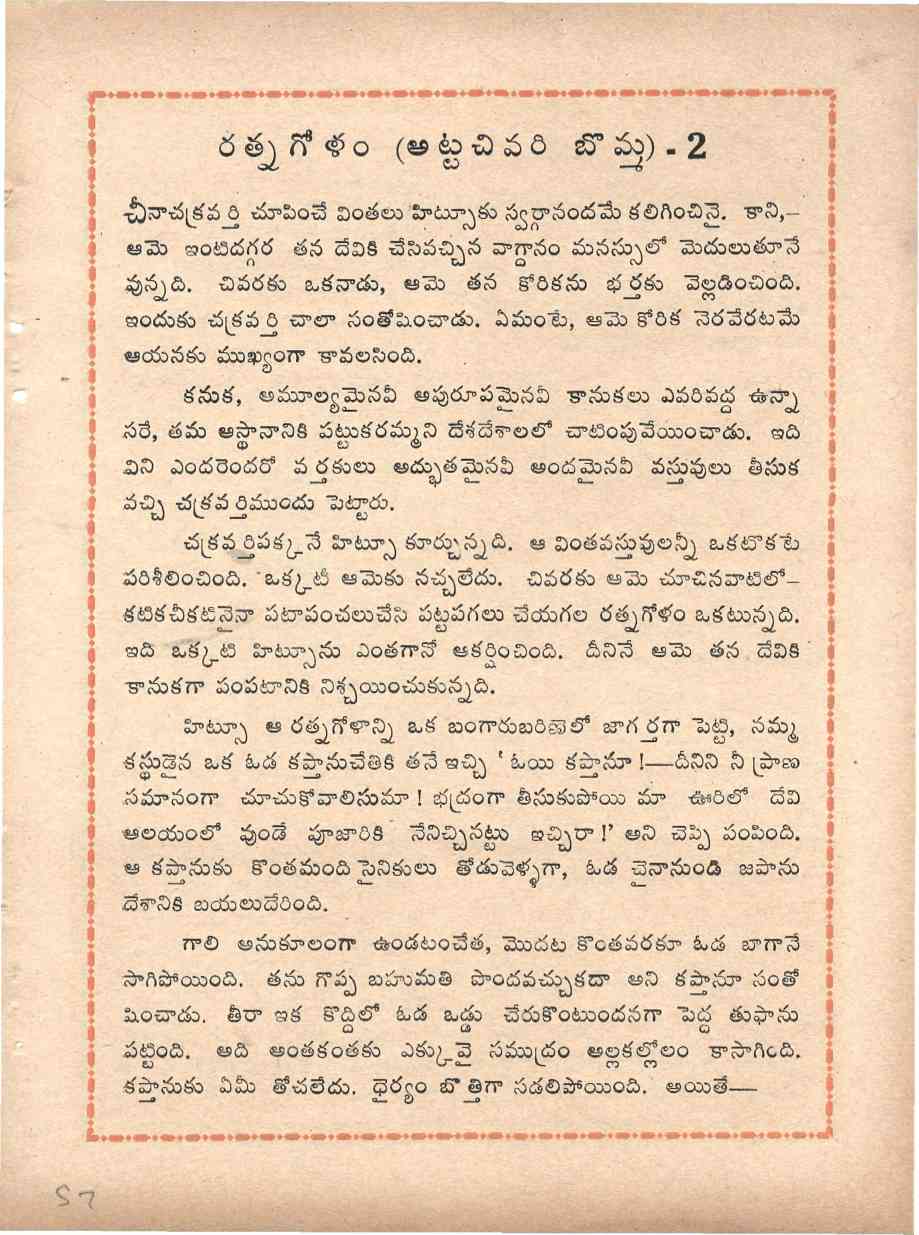 రత్నగోళం (అట్టచివరి బొమ్మ) - 2
చీనాచక్రవర్తి చూపించే వింతలు హిట్సూకు స్వర్గానందమే కలిగించినై. కాని,—
ఆమె ఇంటిదగ్గర తన దేవికి చేసివచ్చిన వాగ్దానం మనస్సులో మెదులుతూనే
వున్నది. చివరకు ఒకనాడు, ఆమె తన కోరికను భర్తకు వెల్లడించింది.
ఇందుకు చక్రవర్తి చాలా సంతోషించాడు. ఏమంటే, ఆమె కోరిక నెరవేరటమే
ఆయనకు ముఖ్యంగా కావలసింది.
కనుక, అమూల్యమైనవీ అపురూపమైనవీ కానుకలు ఎవరివద్ద ఉన్నా
సరే, తమ ఆస్థానానికి పట్టుకరమ్మని దేశదేశాలలో చాటింపువేయించాడు. ఇది
విని ఎందరెందరో వర్తకులు అద్భుతమైనవీ అందమైనవీ వస్తువులు తీసుక
వచ్చి చక్రవర్తిముందు పెట్టారు.
చక్రవర్తిపక్కనే హిట్సూ కూర్చున్నది. ఆ వింతవస్తువులన్నీ ఒకటొకటే
పరిశీలించింది. ఒక్కటీ ఆమెకు నచ్చలేదు. చివరకు ఆమె చూచినవాటిలో—
కటికచీకటినైనా పటాపంచలుచేసి పట్టపగలు చేయగల రత్నగోళం ఒకటున్నది.
ఇది ఒక్కటి హిట్సూను ఎంతగానో ఆకర్షించింది. దీనినే ఆమె తన దేవికి
కానుకగా పంపటానికి నిశ్చయించుకున్నది.
హిట్సూ ఆ రత్నగోళాన్ని ఒక బంగారుబరిణెలో జాగర్తగా పెట్టి, నమ్మ
కస్థుడైన ఒక ఓడ కప్తానుచేతికి తనే ఇచ్చి ' ఓయి కప్తానూ !—దీనిని నీ ప్రాణ
సమానంగా చూచుకోవాలిసుమా ! భద్రంగా తీసుకుపోయి మా ఊరిలో దేవి
ఆలయంలో వుండే పూజారికి నేనిచ్చినట్టు ఇచ్చిరా !' అని చెప్పి పంపింది.
ఆ కప్తానుకు కొంతమంది సైనికులు తోడువెళ్ళగా, ఓడ చైనానుండి జపాను
దేశానికి బయలుదేరింది.
గాలి అనుకూలంగా ఉండటంచేత, మొదట కొంతవరకూ ఓడ బాగానే
సాగిపోయింది. తను గొప్ప బహుమతి పొందవచ్చుకదా అని కప్తానూ సంతో
షించాడు. తీరా ఇక కొద్దిలో ఓడ ఒడ్డు చేరుకొంటుందనగా పెద్ద తుఫాను
పట్టింది. అది అంతకంతకు ఎక్కువై సముద్రం అల్లకల్లోలం కాసాగింది.
కప్తానుకు ఏమీ తోచలేదు. ధైర్యం బొత్తిగా సడలిపోయింది. అయితే—
57